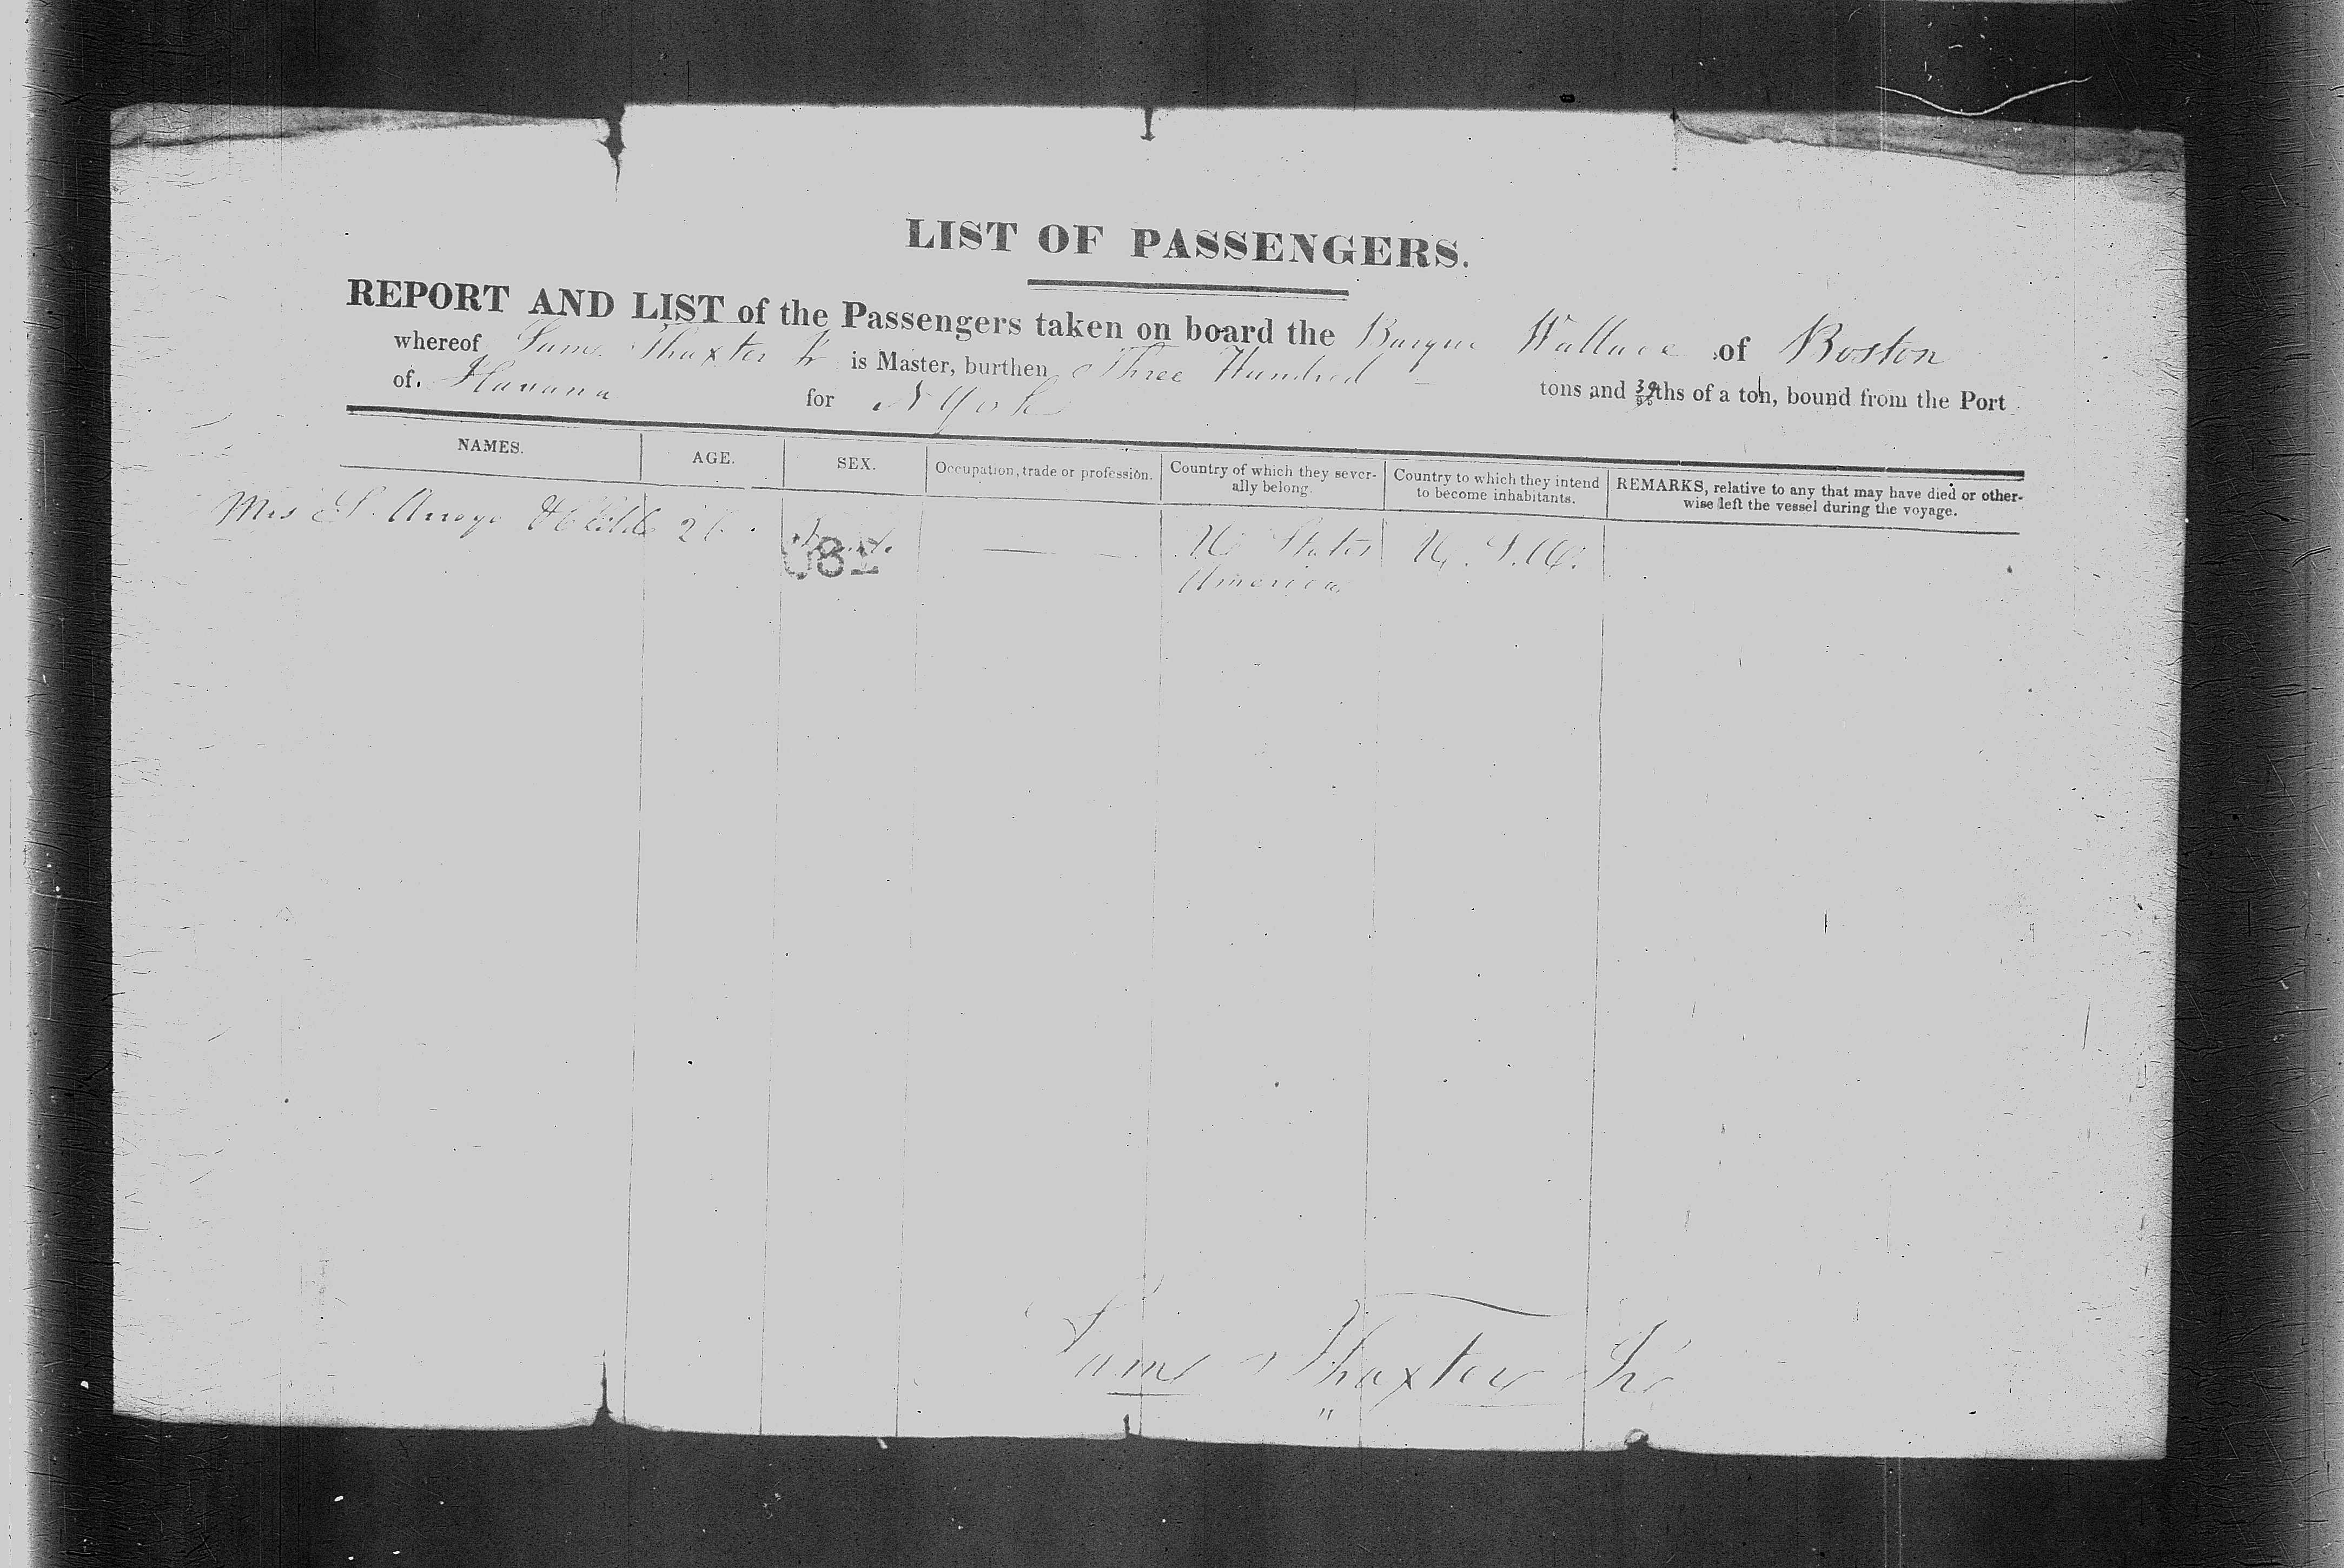 LIST OF PASSENGERS.
REPORT AND LIST of the Passengers taken on board the Barque Wallace of Boston
whereof Saml Thaxter Jr is Master, burthen Three Hundred tons and 39/95ths of a ton, bound from the Port
of Havana for N York
NAMES. AGE. SEX. Occupation, trade or profession. Country of which they sever-
ally belong. Country to which they intend
to become inhabitants. REMARKS, relative to any that may have died or other-
wise left the vessel during the voyage.
Mrs S. Arroyo & Child 26 U. States U.S.A.
America
Saml Thaxter Jr